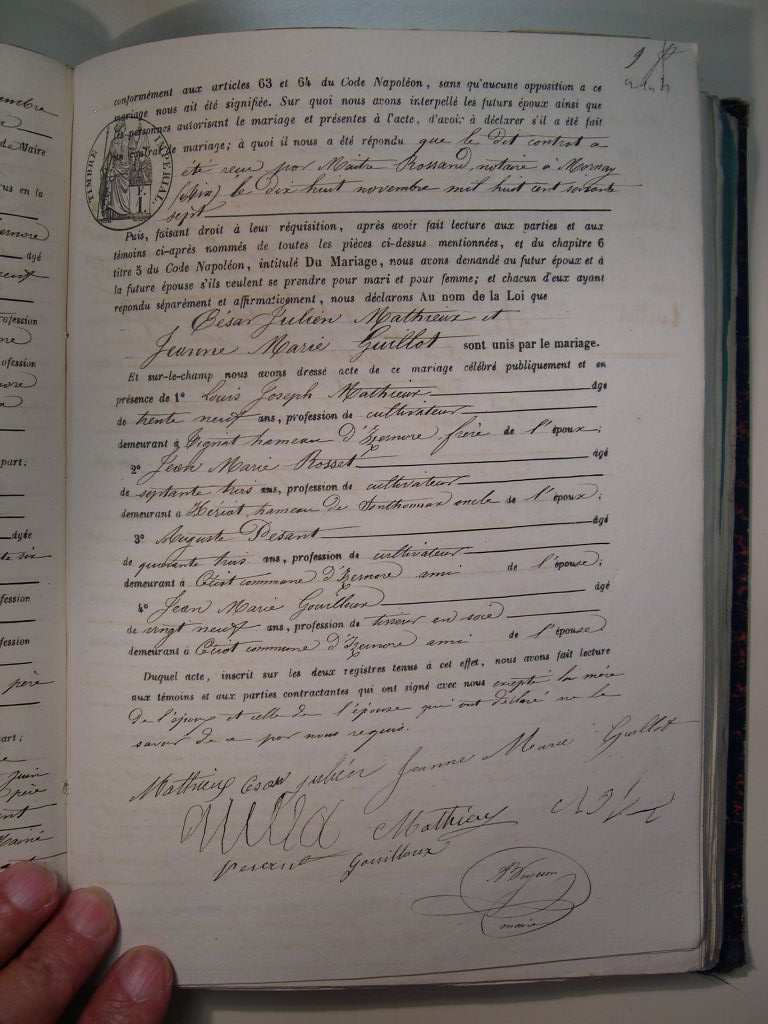 embre
de Maire
us en la
ernore
âgé
neuf
ofession
part:
dgée
te six
fession
fession
père
art:
Juin
père
conformément aux articles 63 et 64 du Code Napoléon, sans qu'aucune opposition a ce
mariage nous ait été signifiée. Sur quoi nous avons interpellé les futurs époux ainsi que
personnes autorisant le mariage et présentes à l'acte, d'avoir à déclarer s'il a été fait
contrat de mariage; à quoi il nous a été répondu que le dit contrat a
été reçu par Maitre Rossand, notaire à Mornay
(Ain) le dix huit novembre mil huit cent soixante
sept
TIMBRE IMPÉRIAL
Puis, faisant droit à leur réquisition, après avoir fait lecture aux parties et aux
témoins ci-après nommés de toutes les pièces ci-dessus mentionnées, et du chapitre 6
titre 5 du Code Napoléon, intitulé Du Mariage, nous avons demandé au futur époux et à
la future épouse s'ils veulent se prendre pour mari et pour femme; et chacun d'eux ayant
répondu séparément et affirmativement, nous déclarons Au nom de la Loi que
César Julien Mathieux et
Jeanne Marie Guillot sont unis par le mariage.
Et sur-le-champ nous avons dressé acte de ce mariage célébré publiquement et en
présence de 1° Louis Joseph Mathieux âgé
de trente neuf ans, profession de cultivateur
demeurant à Tignat hameau d'Izernore frère de l'époux;
2° Jean Marie Rosset âgé
de septante trois ans, profession de cultivateur
demeurant à Hériat, hameau de Senthonnax oncle de l'époux;
3° Auguste Pesant âgé
de quarante trois ans, profession de cultivateur
demeurant à Ceïsiat commune d'Izernore ami de l'épouse;
4° Jean Marie Gouilloux âgé
de vingt neuf ans, profession de tisseur en soie
demeurant à commune d'Izernore ami de l'épouse
Duquel acte, inscrit sur les deux registres tenus à cet effet, nous avons fait lecture
aux témoins et aux parties contractantes qui ont signé avec nous excepté la mère
de l'époux et celle de l'épouse qui ont déclaré ne le
savoir de ce par nous requis.
Mathieux César julien Jeanne Marie Guillot
Mathieux
Gouilloux
maire